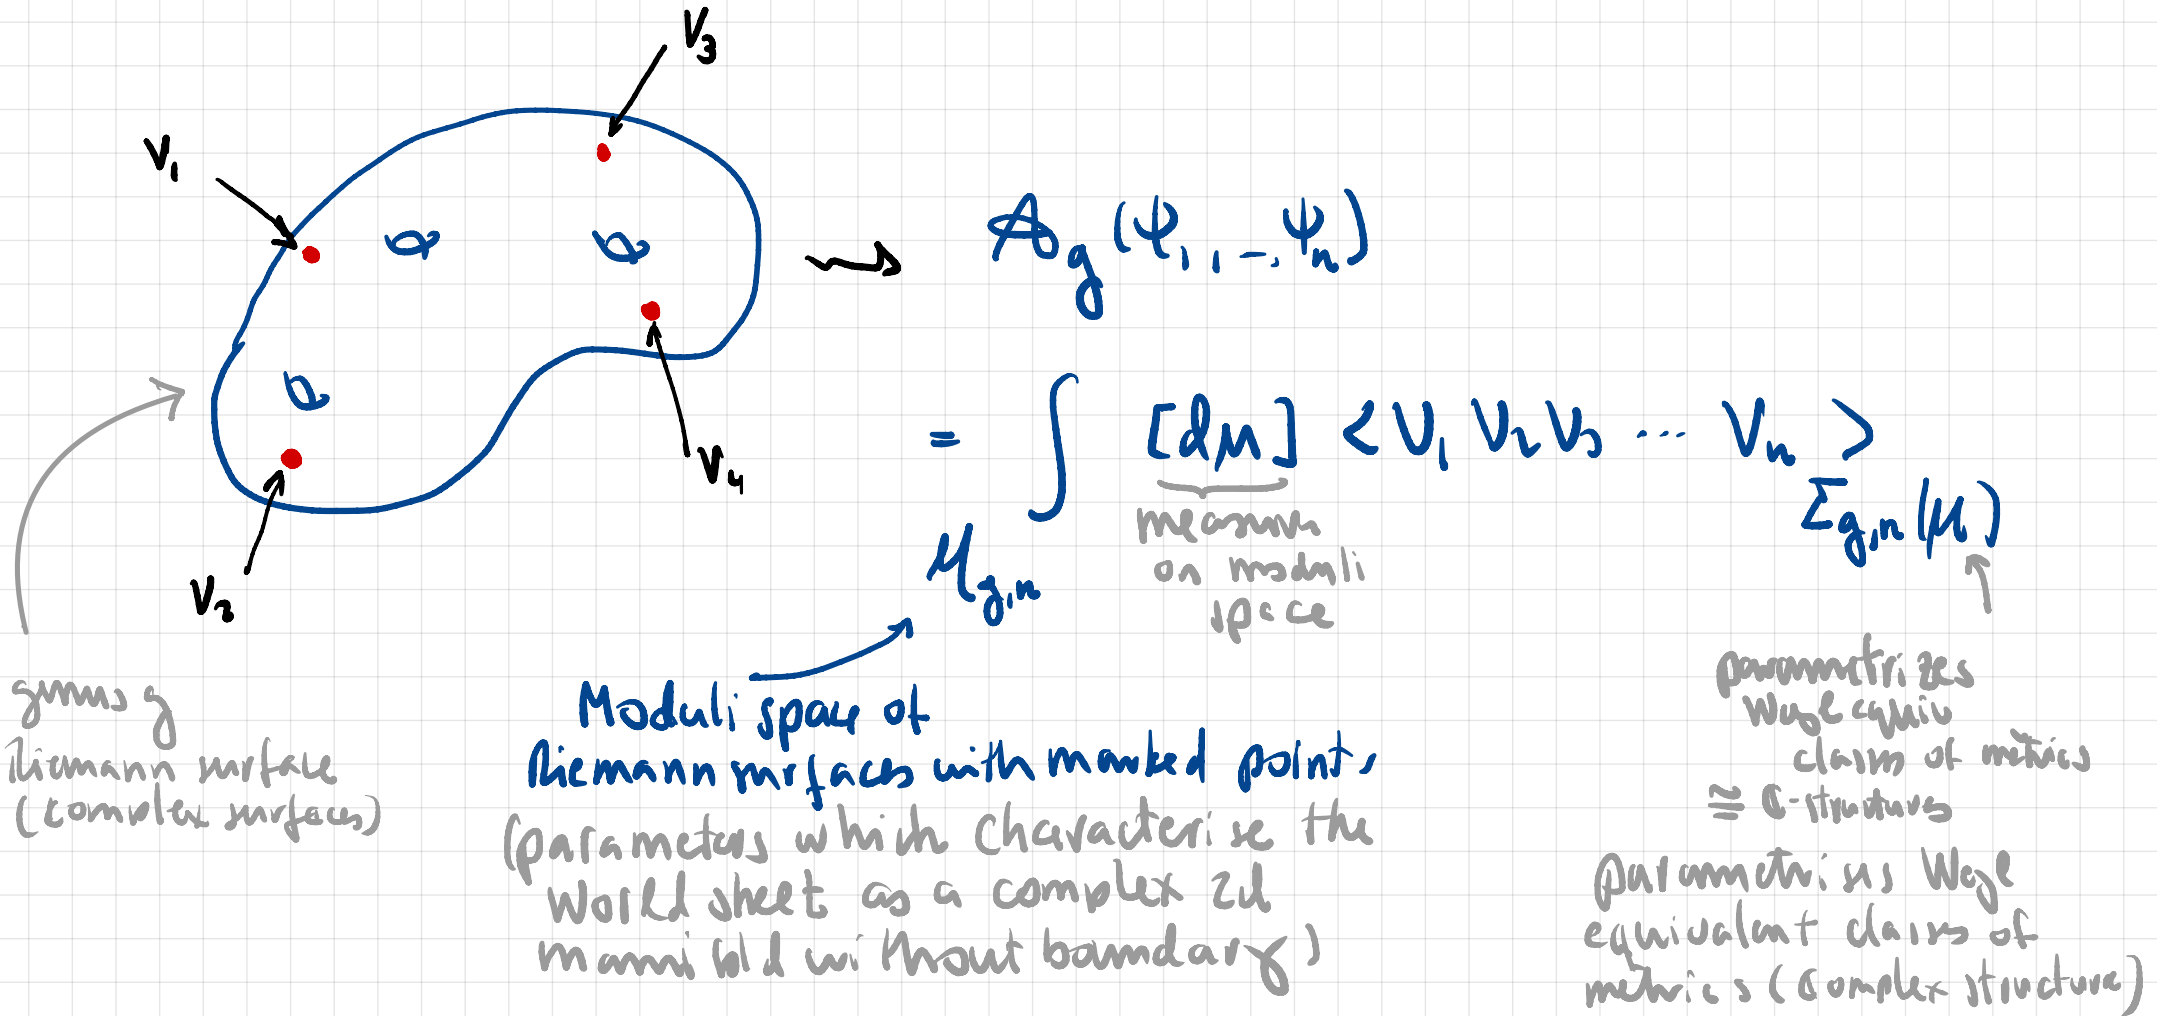 V₃
V₁
𝒜_g (ψ₁, …, ψₙ)
= ∫_{ℳ_{g,n}} [dμ] < V₁ V₂ V₃ ⋯ Vₙ >_{Σ_{g,n}(μ)}
V₄
measure
on moduli
space
V₂
genus g
Riemann surface
(complex surfaces)
Moduli space of
Riemann surfaces with marked points
(parameters which characterise the
world sheet as a complex 2d
manifold without boundary)
parametrizes
Weyl equiv
classes of metrics
≅ ℂ-structures
parametrises Weyl
equivalent classes of
metrics (complex structure)